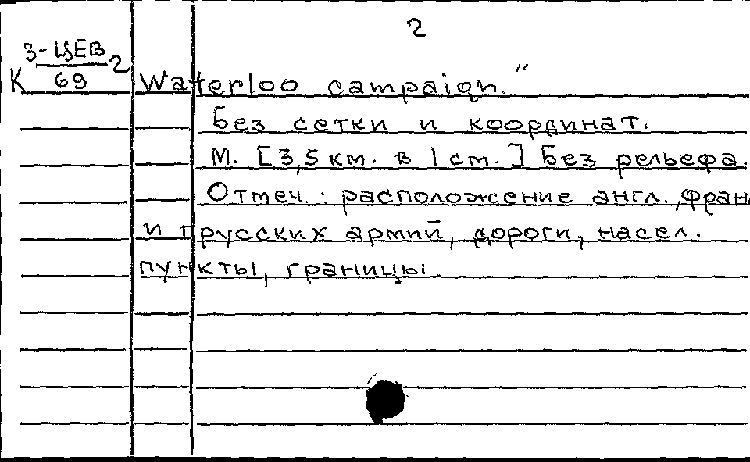 2
К 3-ЦЕВ/69 2
Waterloo campaign."
Без сетки и координат.
М. [3,5 км. в 1 см.] Без рельефа.
Отмеч.: расположение англ., фран
и прусских армий, дороги, насел.
пункты, границы.